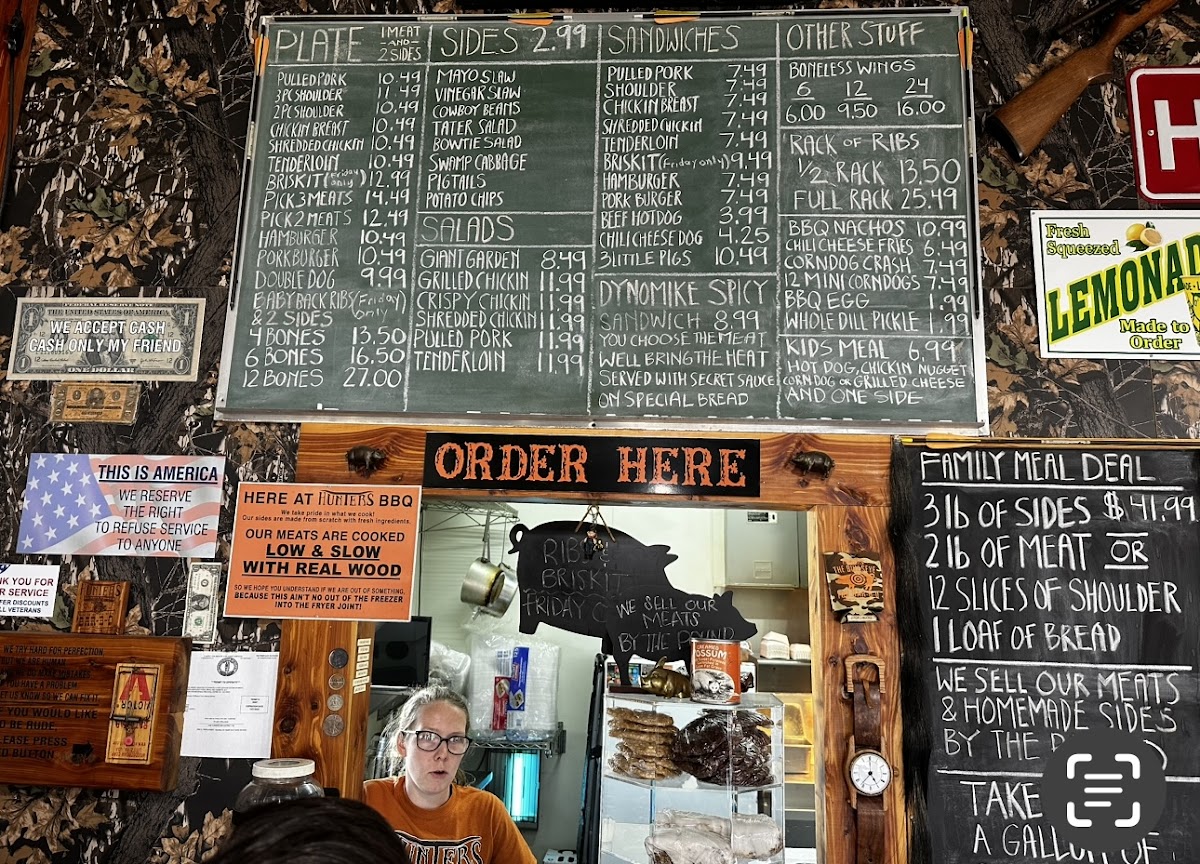 PLATE 1 MEAT -AND- 2 SIDES
PULLED PORK 10.49
3 PC SHOULDER 11.49
2 PC SHOULDER 10.49
CHICKEN BREAST 10.49
SHREDDED CHICKIN 10.49
TENDERLOIN 10.49
BRISKIT (Friday only) 12.99
PICK 3 MEATS 14.49
PICK 2 MEATS 12.49
HAMBURGER 10.49
PORKBURGER 10.49
DOUBLE DOG 9.99
BABY BACK RIBS (Friday only)
& 2 SIDES
4 BONES 13.50
6 BONES 16.50
12 BONES 27.00
SIDES 2.99
MAYO SLAW
VINEGAR SLAW
COWBOY BEANS
TATER SALAD
BOWTIE SALAD
SWAMP CABBAGE
PIGTAILS
POTATO CHIPS
SALADS
GIANT GARDEN 8.49
GRILLED CHICKIN 11.99
CRISPY CHICKIN 11.99
SHREDDED CHICKIN 11.99
PULLED PORK 11.99
TENDERLOIN 11.99
SANDWICHES
PULLED PORK 7.49
SHOULDER 7.49
CHICKIN BREAST 7.49
SHREDDED CHICKIN 7.49
TENDERLOIN 7.49
BRISKIT (Friday only) 9.49
HAMBURGER 7.49
PORK BURGER 7.49
BEEF HOTDOG 3.99
CHILI CHEESE DOG 4.25
3 LITTLE PIGS 10.49
DYNOMIKE SPICY
SANDWICH 8.99
YOU CHOOSE THE MEAT
WELL BRING THE HEAT
SERVED WITH SECRET SAUCE
ON SPECIAL BREAD
OTHER STUFF
BONELESS WINGS
6 12 24
6.00 9.50 16.00
RACK OF RIBS
1/2 RACK 13.50
FULL RACK 25.49
BBQ NACHOS 10.99
CHILI CHEESE FRIES 6.49
CORNDOG CRASH 7.49
12 MINI CORNDOGS 7.49
BBQ EGG 1.99
WHOLE DILL PICKLE 1.99
KIDS MEAL 6.99
HOT DOG, CHICKIN NUGGET
CORN DOG OR GRILLED CHEESE
AND ONE SIDE
H
Fresh
Squeezed
LEMONAD
Made to
Order
FEDERAL RESERVE NOTE
THE UNITED STATES OF AMERICA
WE ACCEPT CASH
CASH ONLY MY FRIEND
ONE DOLLAR
THIS IS AMERICA
WE RESERVE
THE RIGHT
TO REFUSE SERVICE
TO ANYONE
NK YOU FOR
R SERVICE
FER DISCOUNTS
LL VETERANS
HERE AT HUNTERS BBQ
We take pride in what we cook!
Our sides are made from scratch with fresh ingredients.
OUR MEATS ARE COOKED
LOW & SLOW
WITH REAL WOOD
SO WE HOPE YOU UNDERSTAND IF WE ARE OUT OF SOMETHING,
BECAUSE THIS AIN'T NO OUT OF THE FREEZER
INTO THE FRYER JOINT!
ORDER HERE
RIBS &
BRISKIT
FRIDAY
WE SELL OUR
MEATS
BY THE POUND
OSSUM
HUNTERS
WE TRY HARD FOR PERFECTION
BUT WE ARE HUMAN
YOU HAVE A PROBLEM
ET US KNOW SO WE CAN FIX IT
YOU WOULD LIKE
O BE RUDE
EASE PRESS
D BUTTON
VICTOR
FAMILY MEAL DEAL
3 lb OF SIDES $41.99
2 lb OF MEAT OR
12 SLICES OF SHOULDER
1 LOAF OF BREAD
WE SELL OUR MEATS
& HOMEMADE SIDES
BY THE P
TAKE
A GALLON OF